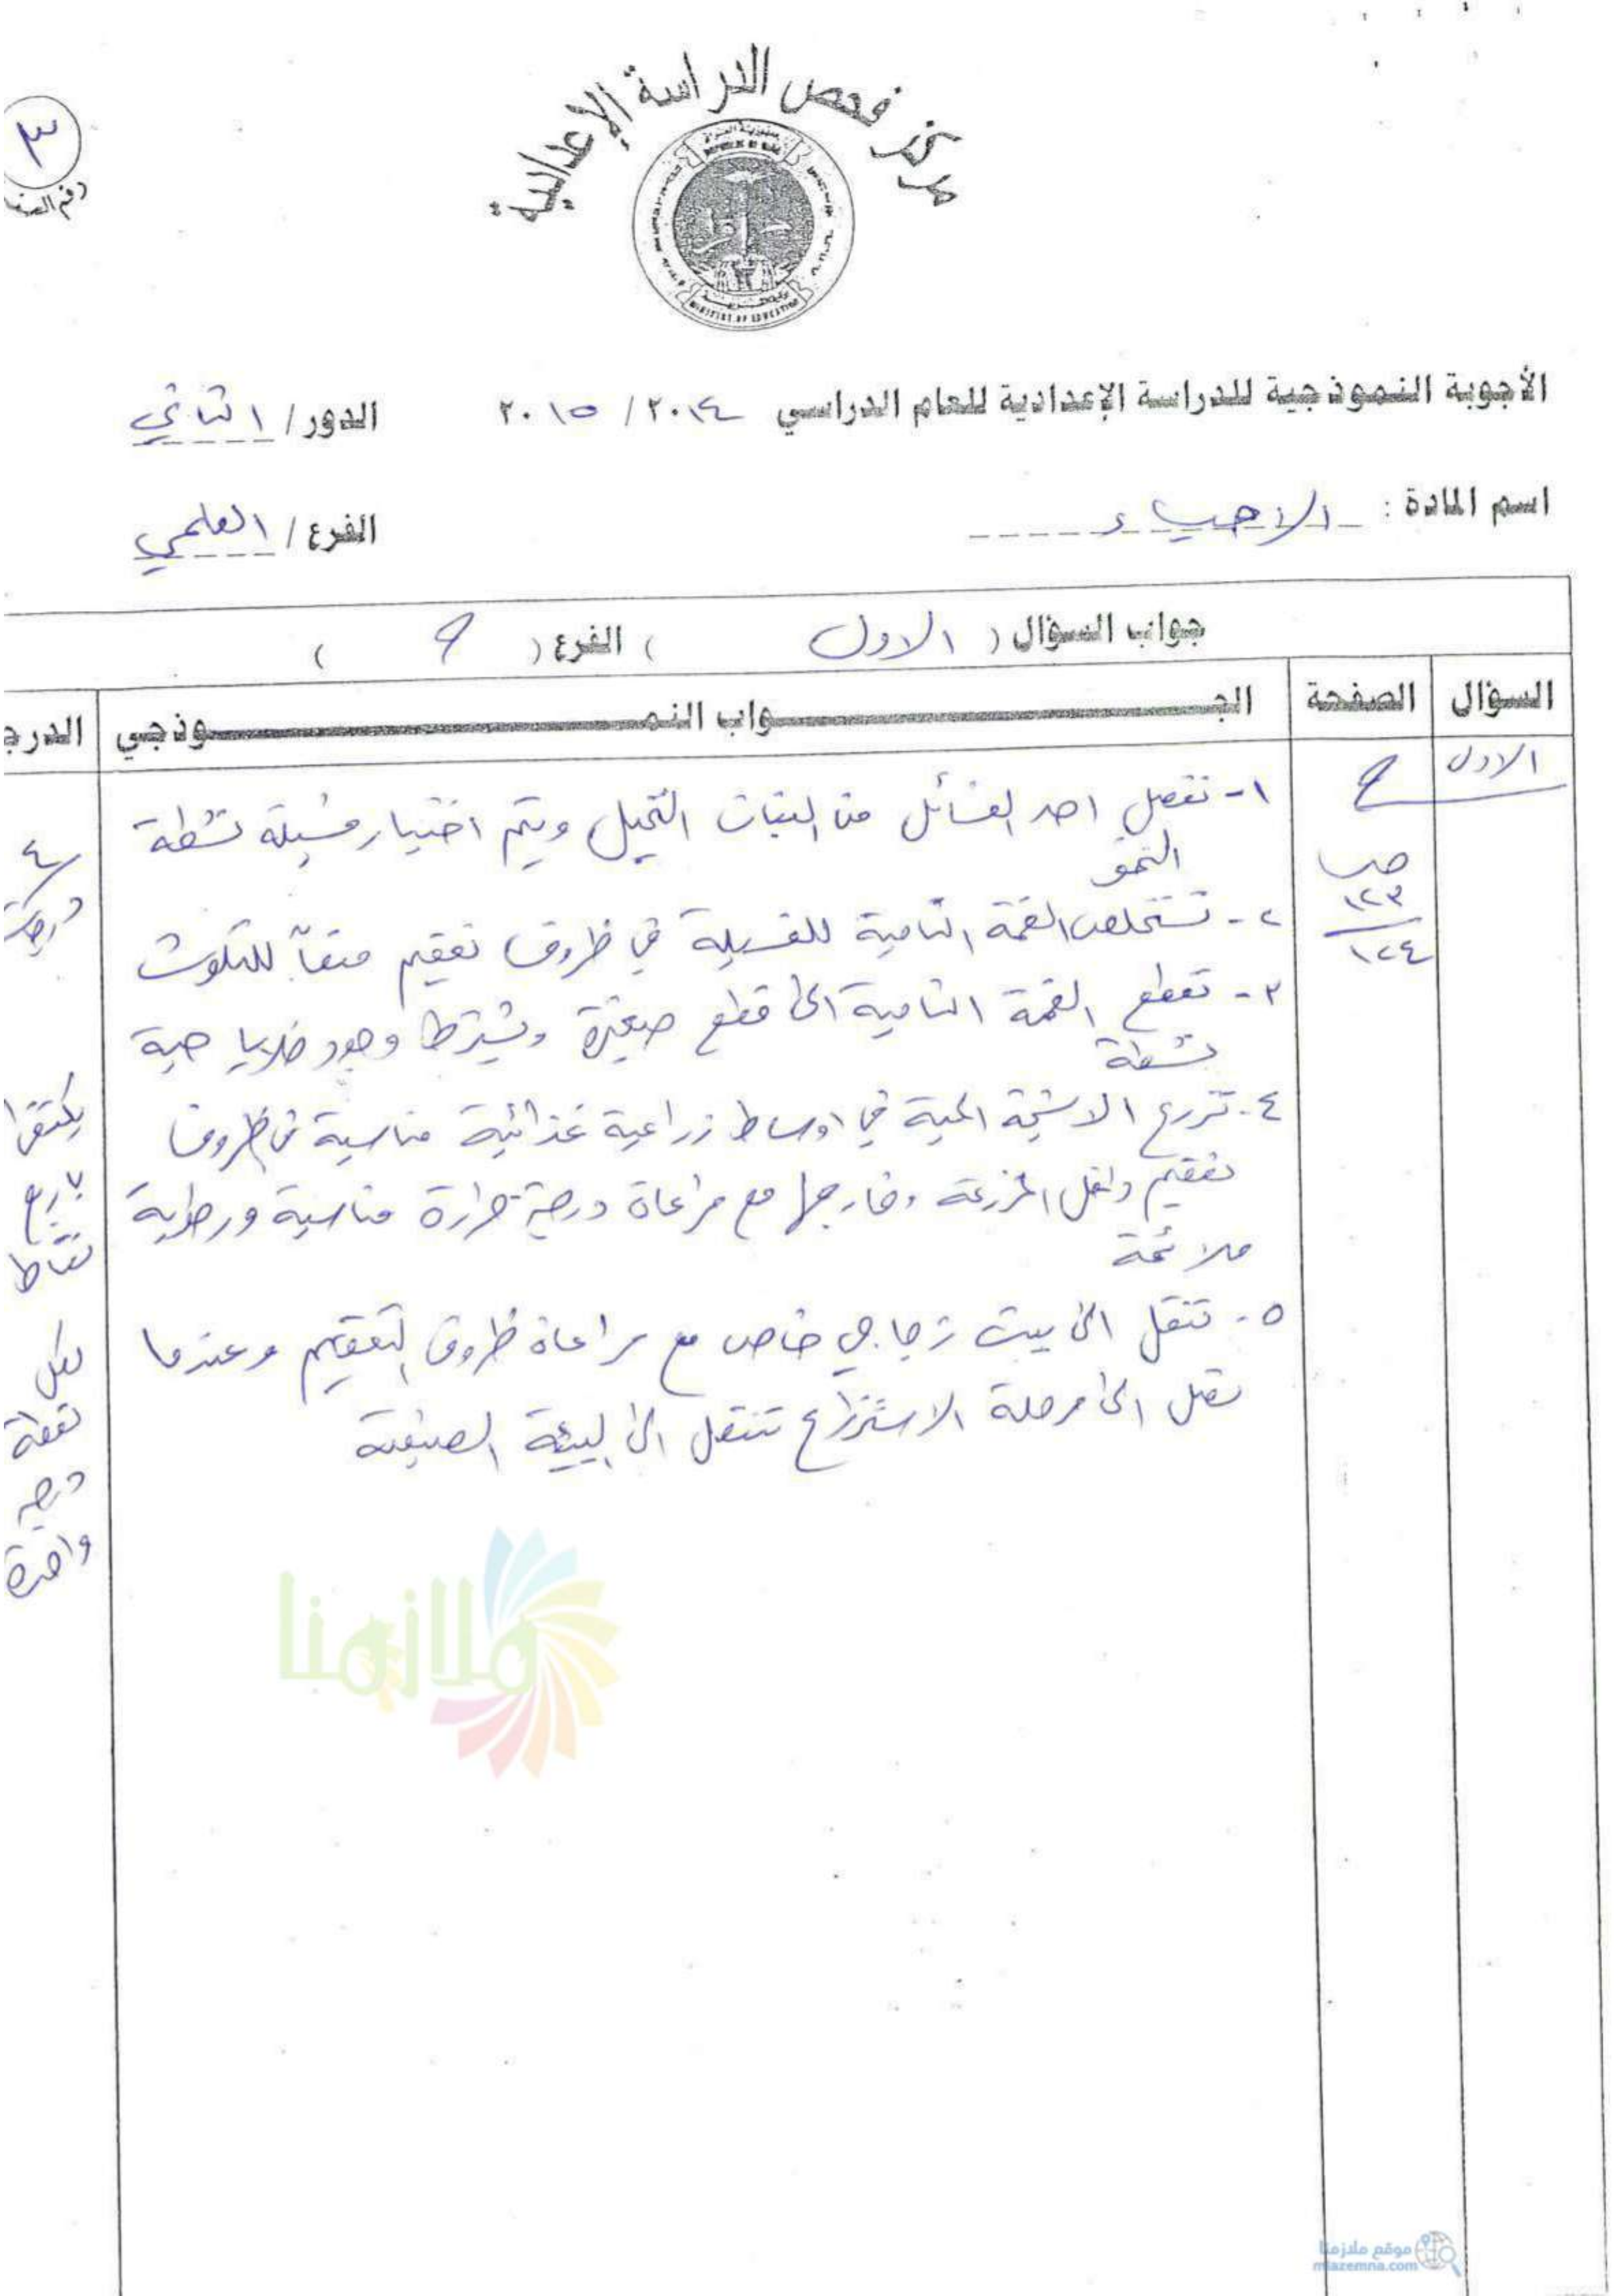 مركز فحص الدراسة الإعدادية
٣
رقم الصف
REPUBLIC OF IRAQ
MINISTRY OF EDUCATION
الأجوبة النموذجية للدراسة الإعدادية للعام الدراسي ٢٠١٤ / ٢٠١٥ الدور / الثاني
اسم المادة : الاحياء الفرع / العلمي
جواب السؤال ( الاول ) الفرع ( )
السؤال الصفحة الجــواب النمــوذجي الدرج
الاول
ص ١٢٣ ١٢٤
١- تفصل احد الفسائل من النبات النخيل ويتم اختيار فسيلة نشطة
النمو
٢- تستخلص القمة النامية للفسيلة في ظروف تعقيم منعاً للتلوث
٣- تقطع القمة النامية الى قطع صغيرة ويشترط وجود خلايا حية
نشطة
٤- تزرع الانسجة الحية في اوساط زراعية غذائية مناسبة في ظروف
تعقيم داخل المزرعة وخارجها مع مراعاة درجة حرارة مناسبة ورطوبة
ملائمة
٥- تنقل الى بيت زجاجي خاص مع مراعاة ظروف التعقيم وعندما
تصل الى مرحلة الاستزراع تنتقل الى البيئة
٤
درجات
يكتفى
باربع
نقاط
لكل
نقطة
درجة
واحدة
ملازمنا
موقع ملازمنا
mlazemna.com